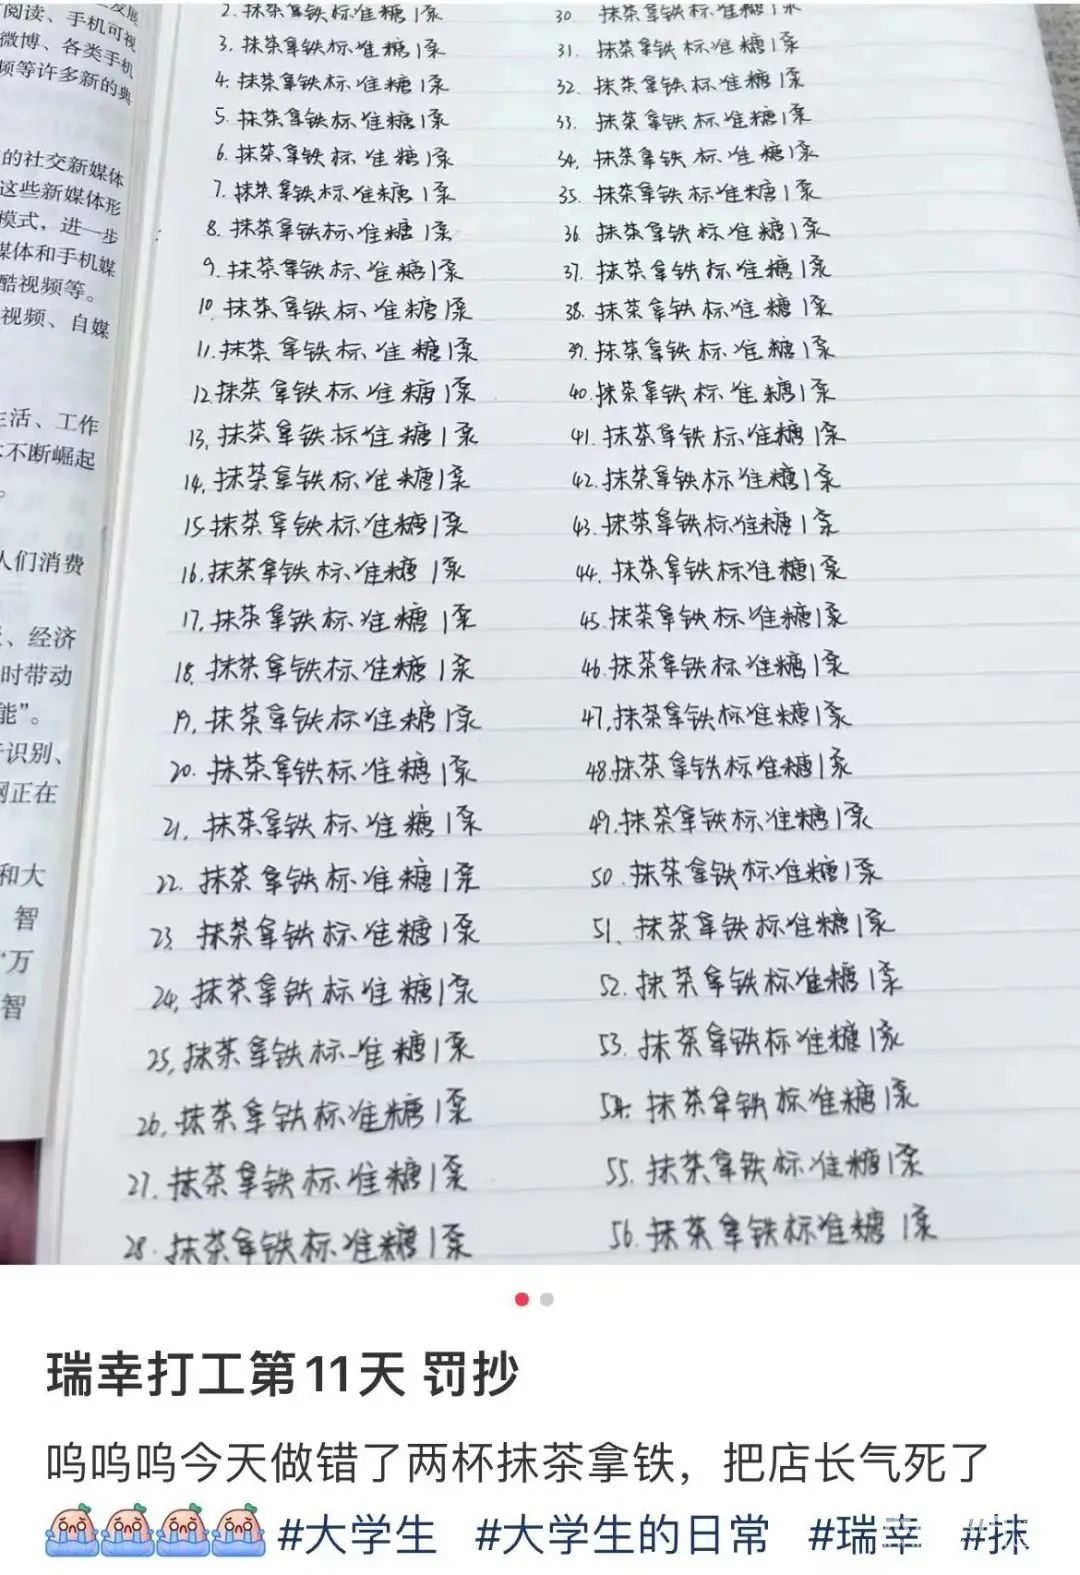 阅读、手机可视
微博、各类手机
频等许多新的典
的社交新媒体
这些新媒体形
模式，进一步
媒体和手机媒
酷视频等。
视频、自媒
生活、工作
不断崛起
。
人们消费
、经济
时带动
能”。
识别、
网正在
和大
智
“万
智
2. 抹茶拿铁标准糖1泵
3. 抹茶拿铁标准糖1泵
4. 抹茶拿铁标准糖1泵
5. 抹茶拿铁标准糖1泵
6. 抹茶拿铁标准糖1泵
7. 抹茶拿铁标准糖1泵
8. 抹茶拿铁标准糖1泵
9. 抹茶拿铁标准糖1泵
10. 抹茶拿铁标准糖1泵
11. 抹茶拿铁标准糖1泵
12. 抹茶拿铁标准糖1泵
13. 抹茶拿铁标准糖1泵
14. 抹茶拿铁标准糖1泵
15. 抹茶拿铁标准糖1泵
16. 抹茶拿铁标准糖1泵
17. 抹茶拿铁标准糖1泵
18. 抹茶拿铁标准糖1泵
19. 抹茶拿铁标准糖1泵
20. 抹茶拿铁标准糖1泵
21. 抹茶拿铁标准糖1泵
22. 抹茶拿铁标准糖1泵
23. 抹茶拿铁标准糖1泵
24. 抹茶拿铁标准糖1泵
25. 抹茶拿铁标准糖1泵
26. 抹茶拿铁标准糖1泵
27. 抹茶拿铁标准糖1泵
28. 抹茶拿铁标准糖1泵
30. 抹茶拿铁标准糖1泵
31. 抹茶拿铁标准糖1泵
32. 抹茶拿铁标准糖1泵
33. 抹茶拿铁标准糖1泵
34. 抹茶拿铁标准糖1泵
35. 抹茶拿铁标准糖1泵
36. 抹茶拿铁标准糖1泵
37. 抹茶拿铁标准糖1泵
38. 抹茶拿铁标准糖1泵
39. 抹茶拿铁标准糖1泵
40. 抹茶拿铁标准糖1泵
41. 抹茶拿铁标准糖1泵
42. 抹茶拿铁标准糖1泵
43. 抹茶拿铁标准糖1泵
44. 抹茶拿铁标准糖1泵
45. 抹茶拿铁标准糖1泵
46. 抹茶拿铁标准糖1泵
47. 抹茶拿铁标准糖1泵
48. 抹茶拿铁标准糖1泵
49. 抹茶拿铁标准糖1泵
50. 抹茶拿铁标准糖1泵
51. 抹茶拿铁标准糖1泵
52. 抹茶拿铁标准糖1泵
53. 抹茶拿铁标准糖1泵
54. 抹茶拿铁标准糖1泵
55. 抹茶拿铁标准糖1泵
56. 抹茶拿铁标准糖1泵
瑞幸打工第11天 罚抄
呜呜呜今天做错了两杯抹茶拿铁，把店长气死了
#大学生 #大学生的日常 #瑞幸 #抹